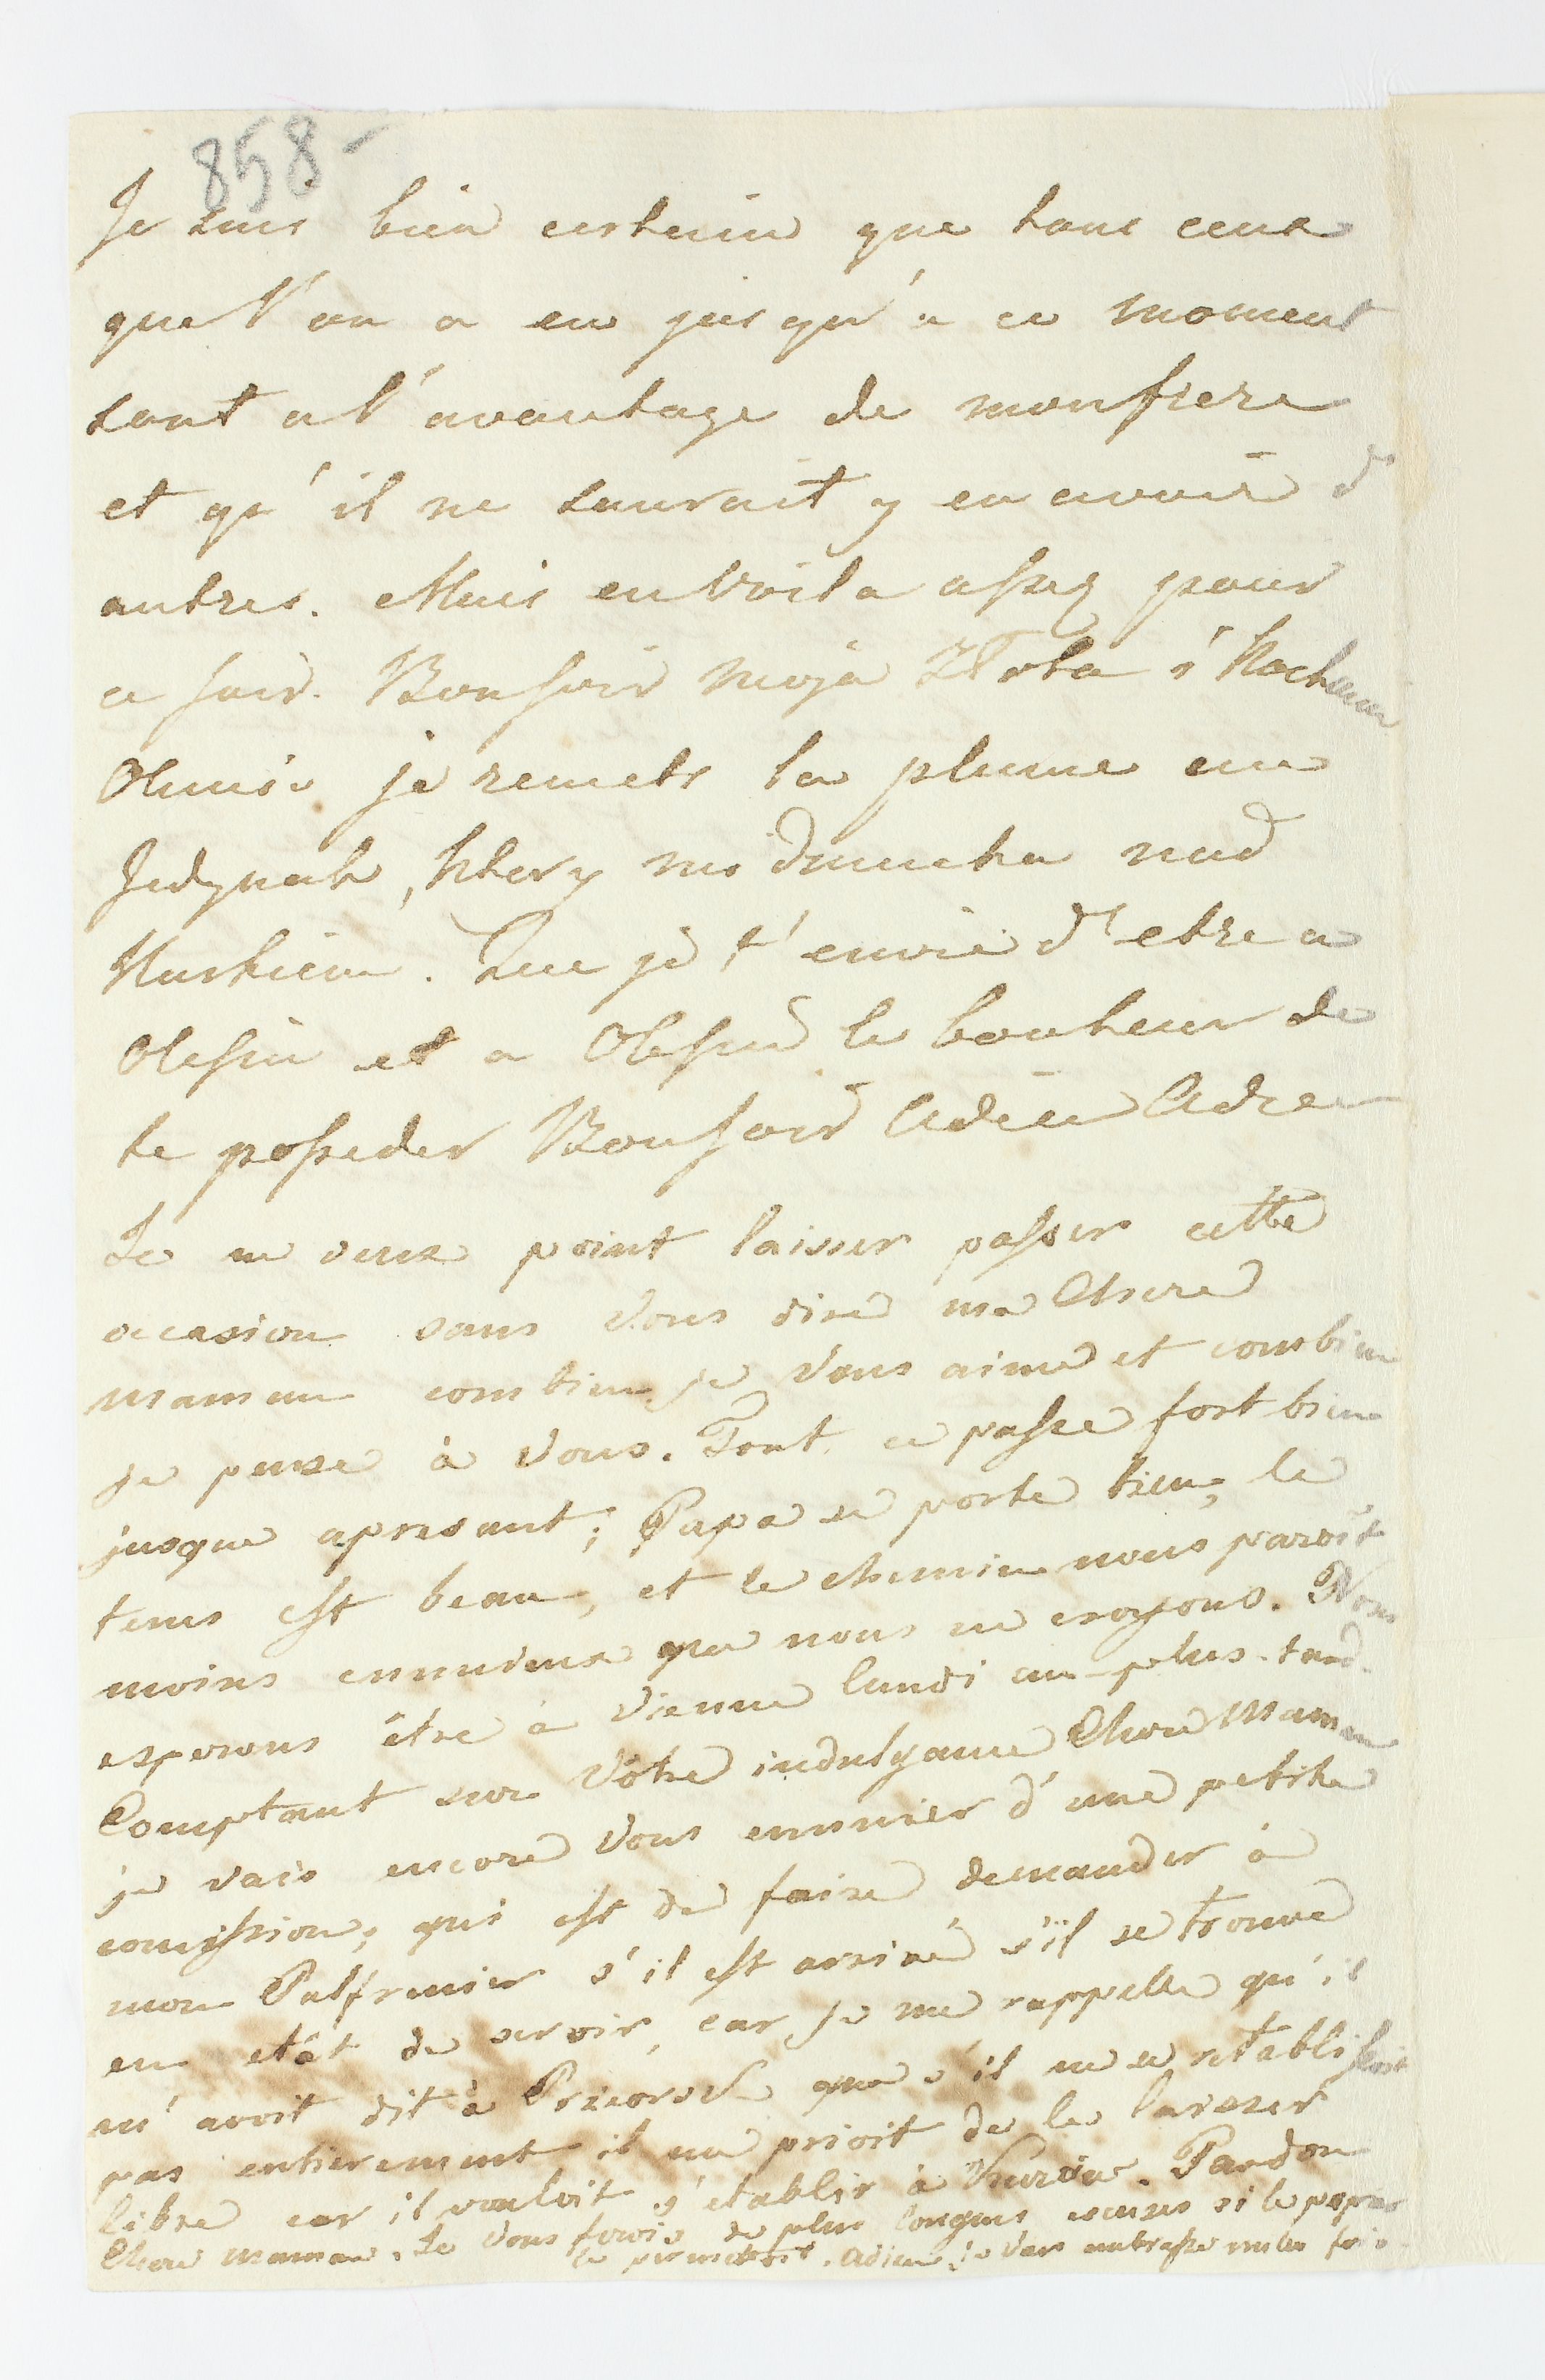 858-
Je suis bien certain que tous ceux
que l'on a eu jusqu'a ce moment
sont a l'avantage de mon frere
et qu'il ne saurait y en avoir d'
autres. Mais en voila assez pour
ce soir. Bonsoir moja Zlota i Kochana
je remets la plume
Jedynak, ktery
Que je t'envie d'etre a
Olesin et a Olesin le bonheur de
te posseder Bonsoir Adieu
Je ne veux point laisser passer cette
occasion sans Vous dire ma Chere
maman combien je Vous aime et combien
je pense à Vous. Tout ce passe fort bien
jusque apresant; Papa se porte bien, le
tems est beau, et le chemin nous paroit
moins ennuieux que nous ne croyons. Nous
esperons être à Vienne lundi au-plus-tard.
Comptant sur Vôtre indulgance Chere Maman
je vais encore Vous ennuier d'une petite
comission; qui est de faire demander à
mon Palfrenier s'il est arrivé s'il se trouve
en etât de servir, car je me rappelle qu'il
m'avoit dit à que s'il ne se retablissoit
pas entierement il me prioit de le laisser
libre car il vouloit s'etablir à . Pardon
Chere maman. Je Vous ferois de plus longues excuses si le papier
le permettoit. Adieu je Vous embrasse milles fois.